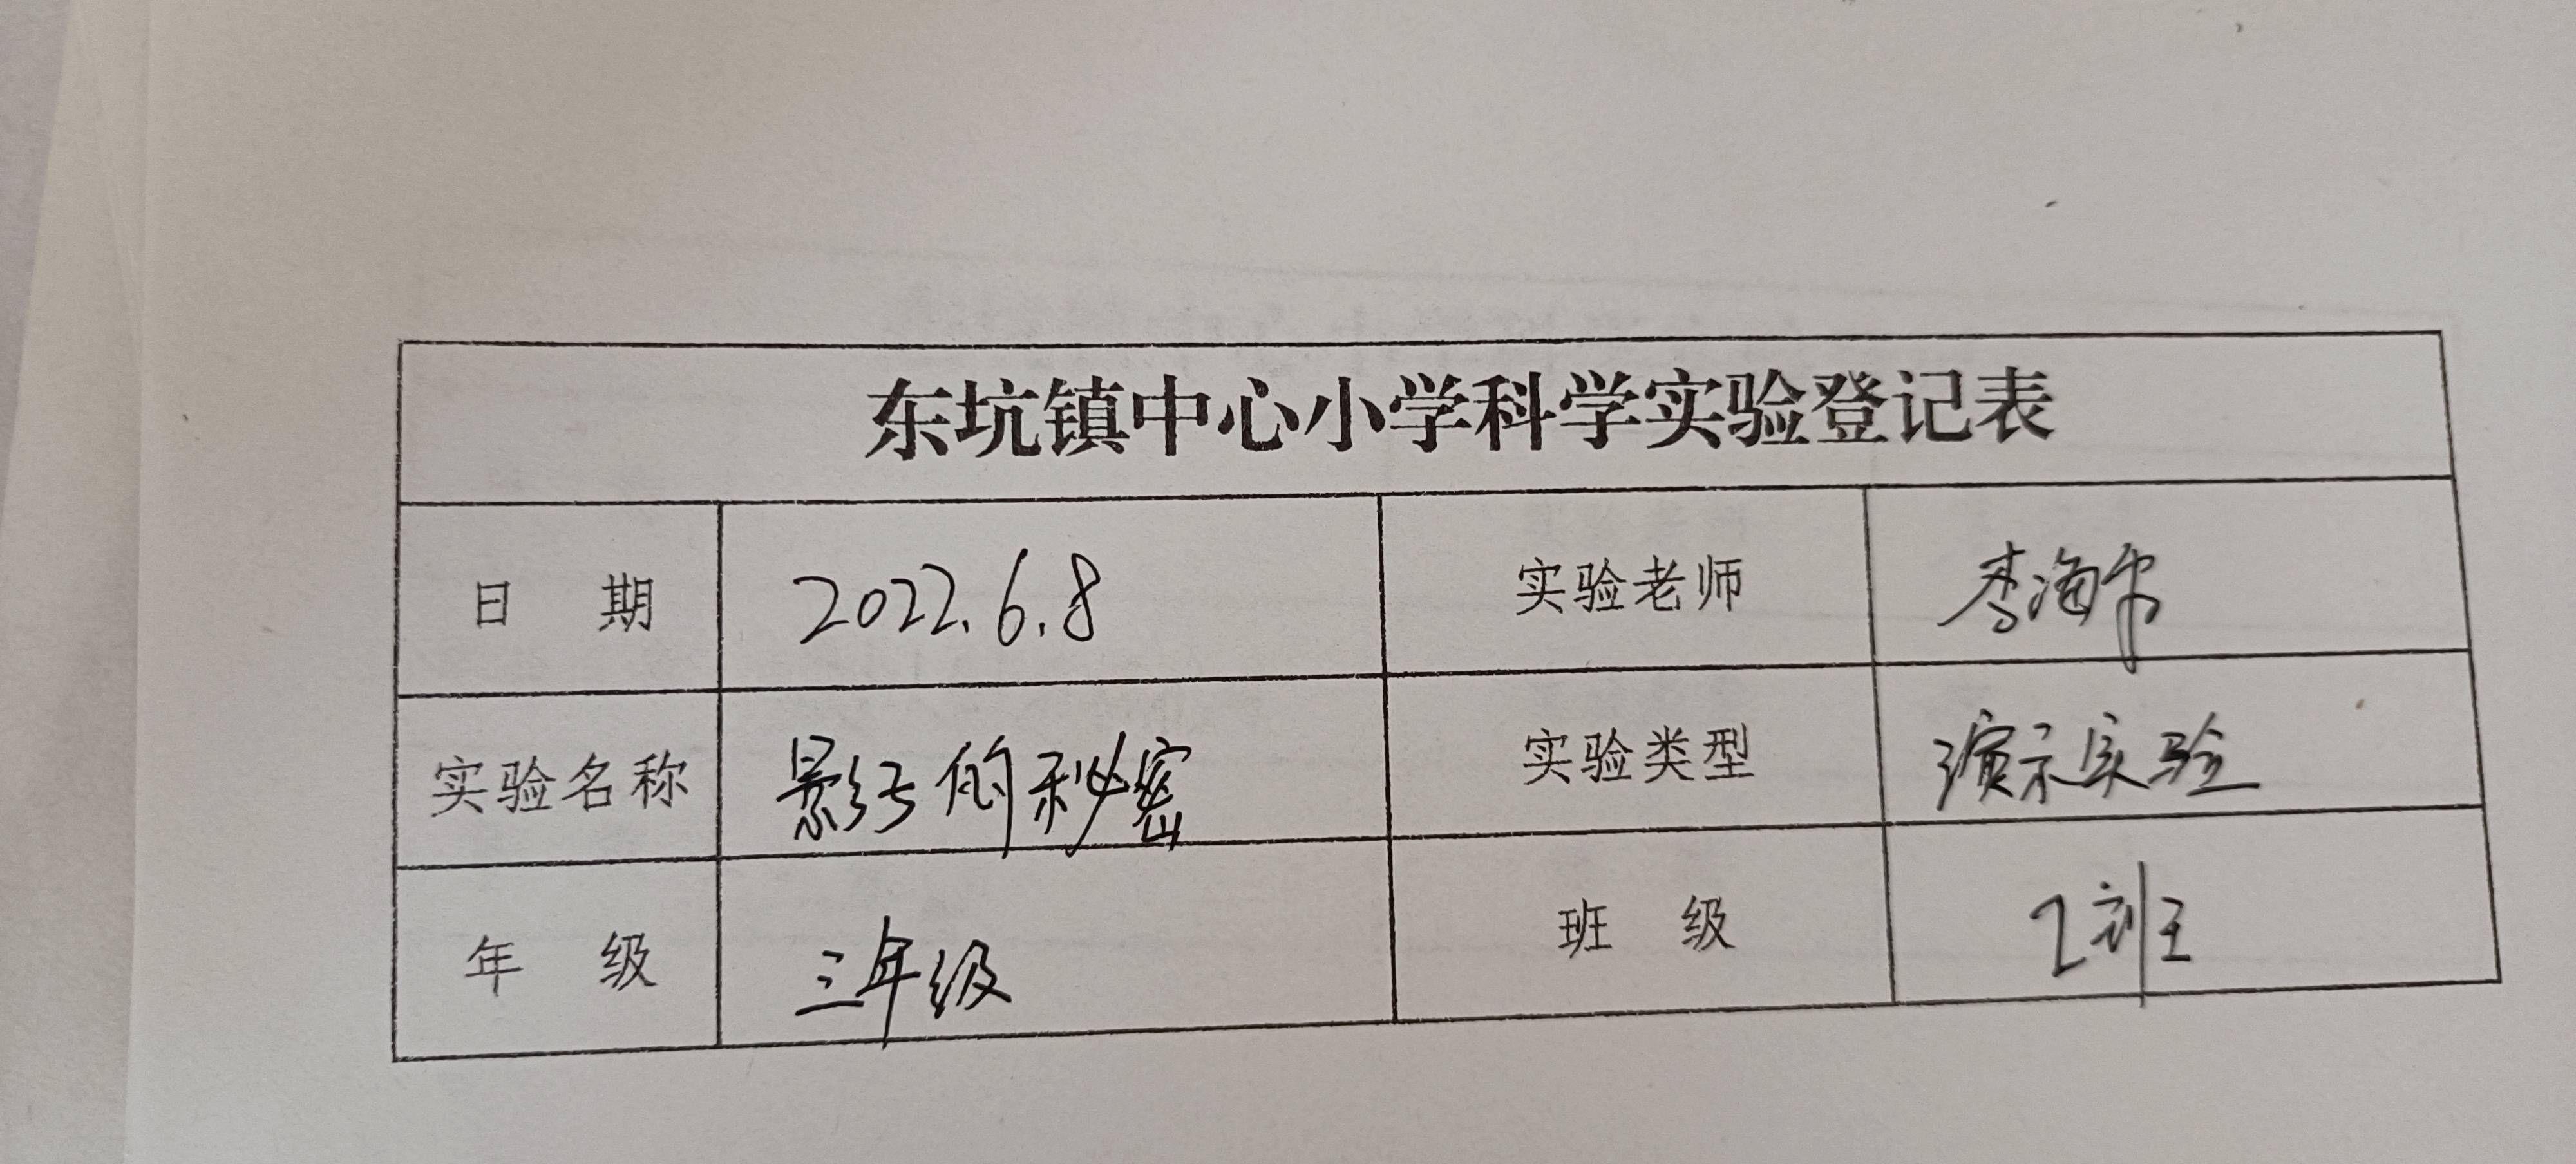 东坑镇中心小学科学实验登记表
日 期 2022.6.8 实验老师 李海
实验名称 影子的秘密 实验类型 演示实验
年 级 三年级 班 级 2班